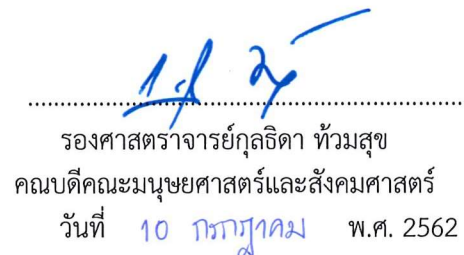 รองศาสตราจารย์กุลธิดา ท้วมสุข
คณบดีคณะมนุษยศาสตร์และสังคมศาสตร์
วันที่ 10 กรกฎาคม พ.ศ. 2562